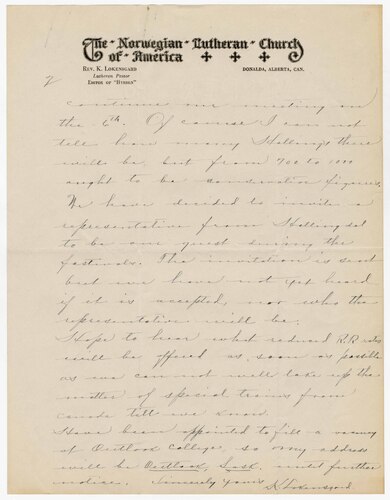 The Norwegian Lutheran Church
of America
REV. K. LOKENSGARD
Lutheran Pastor
EDITOR OF "HYRDEN"
DONALDA, ALBERTA, CAN.
2
continue our meeting on
the 6th. Of course I can not
tell how many Hallings there
will be, but from 700 to 1000
ought to be conservative figures.
We have decided to invite a
representative from Hallingdal
to be our guest during the
festivals. The invitation is sent
but we have not yet heard
if it is accepted, nor who the
representative will be.
Hope to hear what reduced R.R. rates
will be offered as soon as possible
as we can not well take up the
matter of special trains from
Canada till we know.
Have been appointed to fill a vacancy
at Outlook College, so my address
will be Outlook, Sask. until further
notice. Sincerely Yours
K Lokensgard